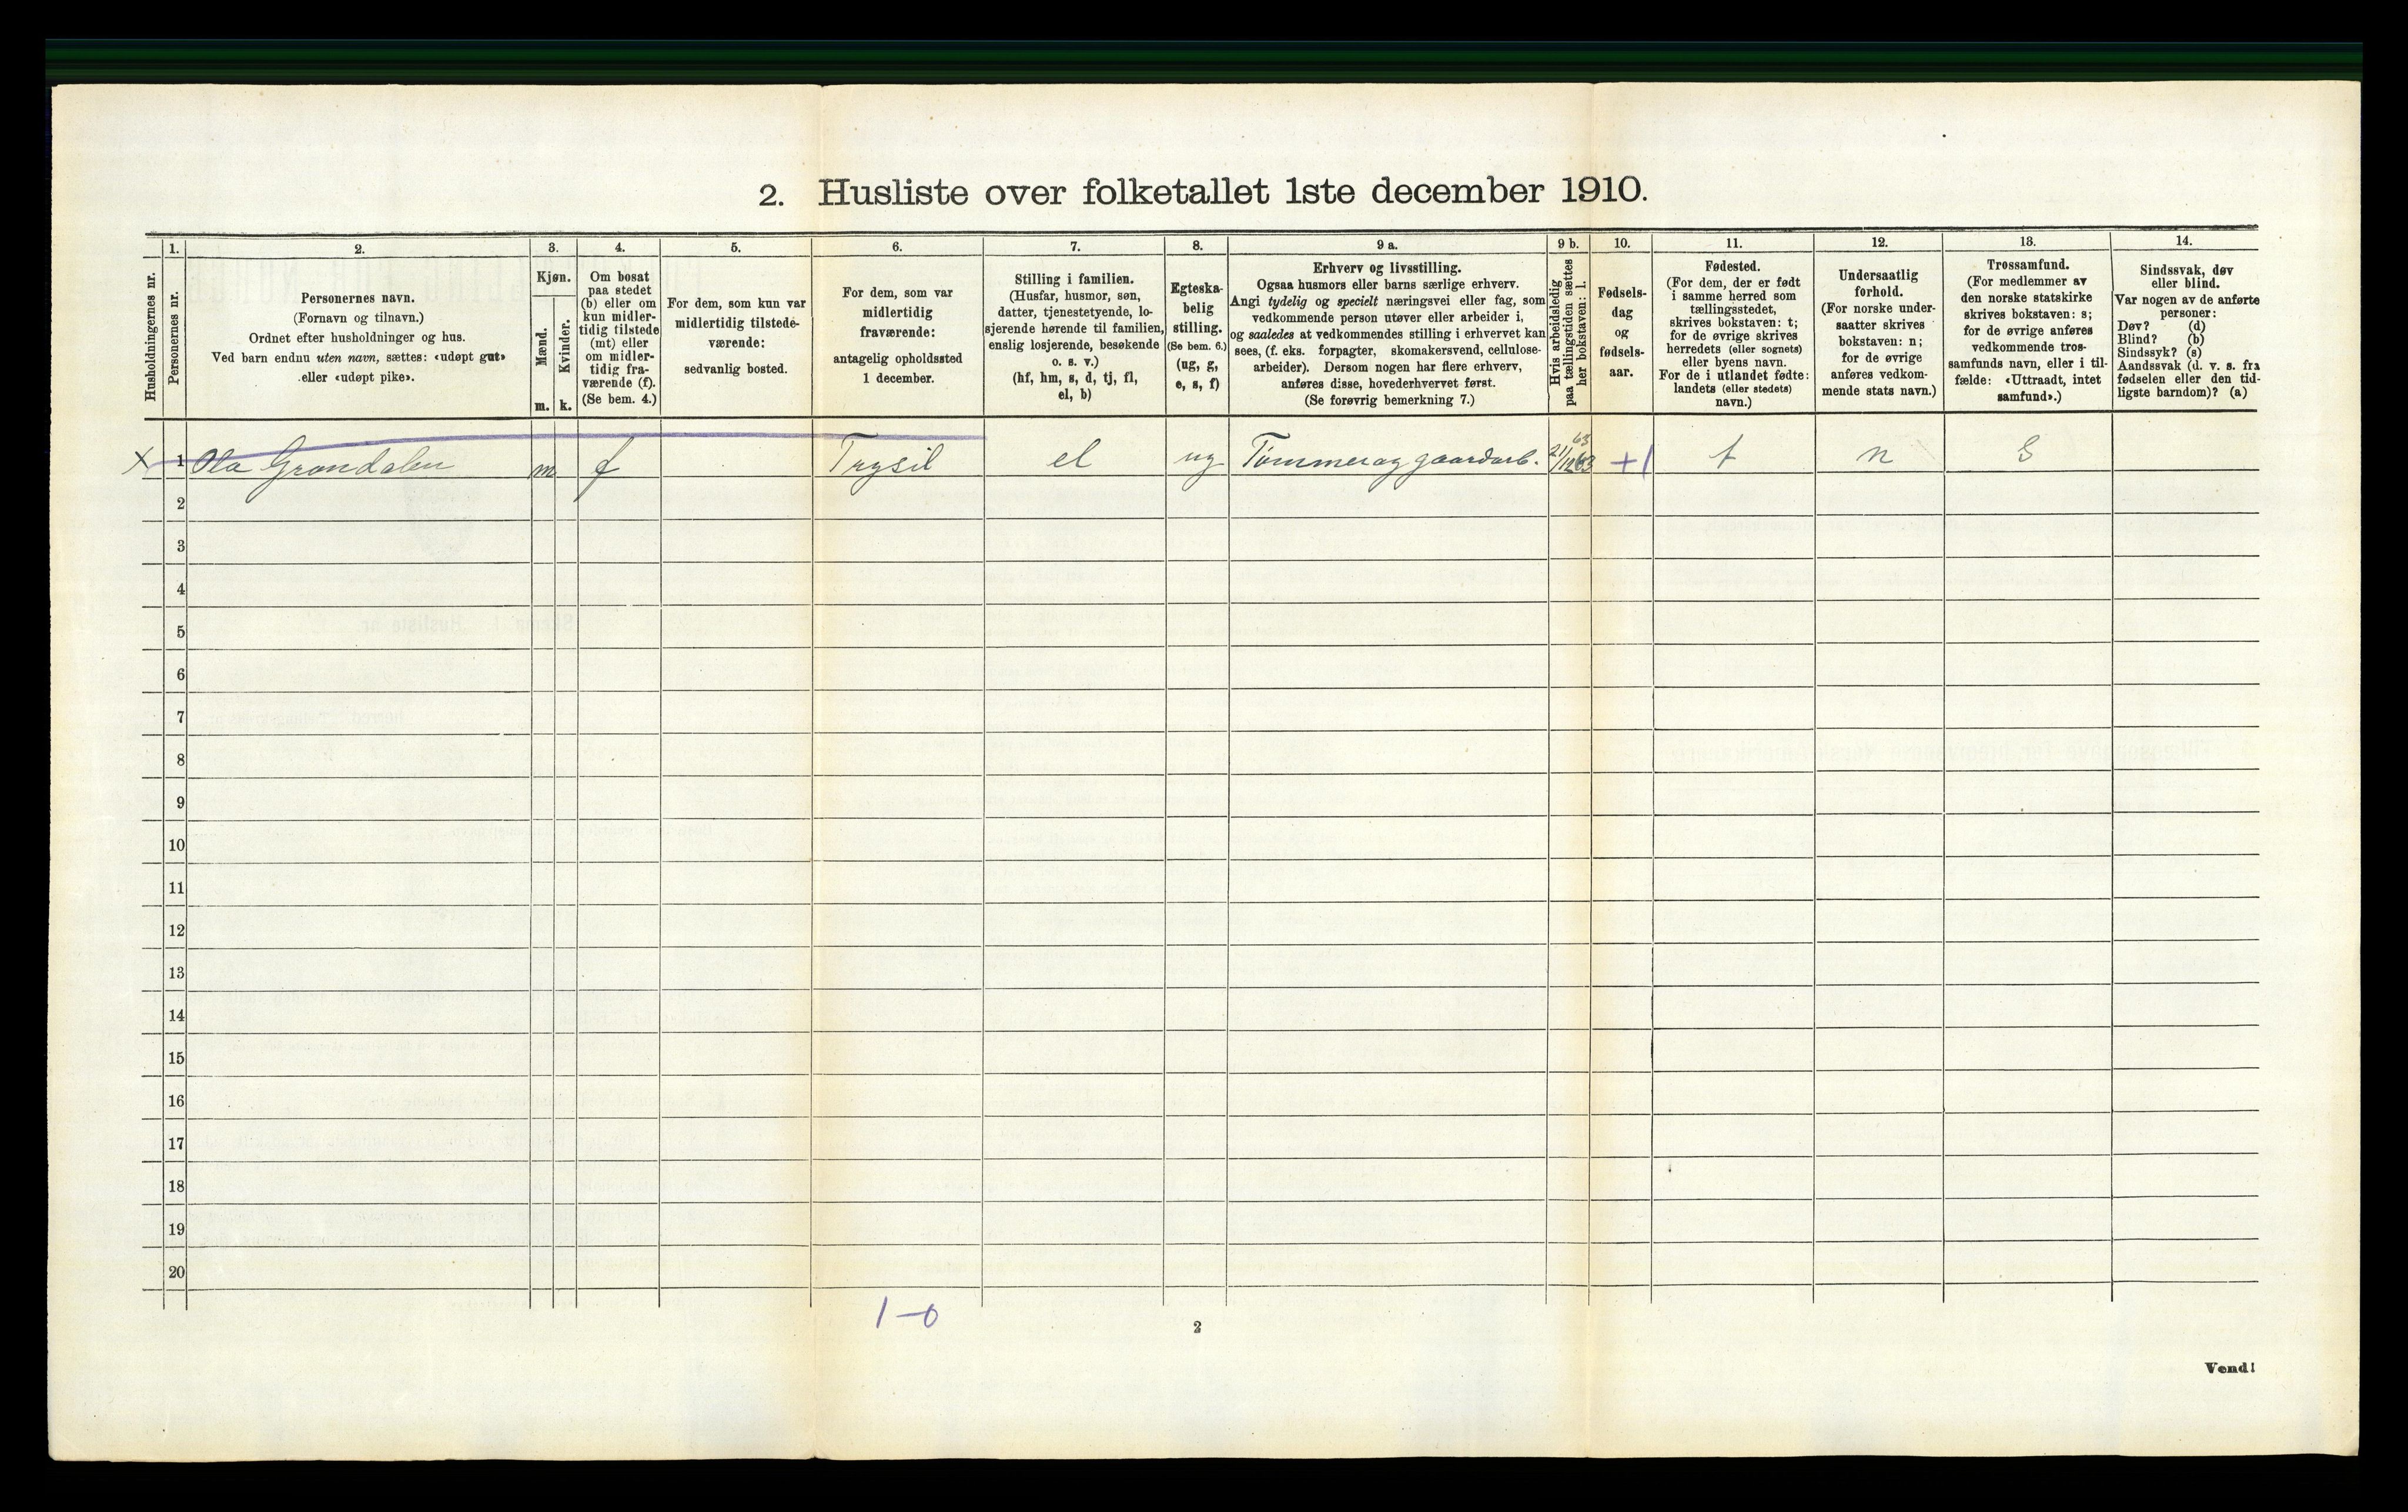 2. Husliste over folketallet 1ste december 1910.
Husholdningernes nr.
1.
Personernes nr.
2.
Personernes navn.
(Fornavn og tilnavn.)
Ordnet efter husholdninger og hus.
Ved barn endnu uten navn, sættes: «udøpt gut»
eller «udøpt pike».
3.
Kjøn.
Mænd.
m.
Kvinder.
k.
4.
Om bosat
paa stedet
(b) eller om
kun midler-
tidig tilstede
(mt) eller
om midler-
tidig fra-
værende (f).
(Se bem. 4.)
5.
For dem, som kun var
midlertidig tilstede-
værende:
sedvanlig bosted.
6.
For dem, som var
midlertidig
fraværende:
antagelig opholdssted
1 december.
7.
Stilling i familien.
(Husfar, husmor, søn,
datter, tjenestetyende, lo-
sjerende hørende til familien,
enslig losjerende, besøkende
o. s. v.)
(hf, hm, s, d, tj, fl,
el, b)
8.
Egteska-
belig
stilling.
(Se bem. 6.)
(ug, g,
e, s, f)
9 a.
Erhverv og livsstilling.
Ogsaa husmors eller barns særlige erhverv.
Angi tydelig og specielt næringsvei eller fag, som
vedkommende person utøver eller arbeider i,
og saaledes at vedkommendes stilling i erhvervet kan
sees, (f. eks. forpagter, skomakersvend, cellulose-
arbeider). Dersom nogen har flere erhverv,
anføres disse, hovederhvervet først.
(Se forøvrig bemerkning 7.)
9 b.
Hvis arbeidsledig
paa tællingstiden sættes
her bokstaven: l.
10.
Fødsels-
dag
og
fødsels-
aar.
11.
Fødested.
(For dem, der er født
i samme herred som
tællingsstedet,
skrives bokstaven: t;
for de øvrige skrives
herredets (eller sognets)
eller byens navn.
For de i utlandet fødte:
landets (eller stedets)
navn.)
12.
Undersaatlig
forhold.
(For norske under-
saatter skrives
bokstaven: n;
for de øvrige
anføres vedkom-
mende stats navn.)
13.
Trossamfund.
(For medlemmer av
den norske statskirke
skrives bokstaven: s;
for de øvrige anføres
vedkommende tros-
samfunds navn, eller i til-
fælde: «Uttraadt, intet
samfund».)
14.
Sindssvak, døv
eller blind.
Var nogen av de anførte
personer:
Døv? (d)
Blind? (b)
Sindssyk? (s)
Aandssvak (d. v. s. fra
fødselen eller den tid-
ligste barndom)? (a)
X 1 Ola Grøndalen m f Trysil el ug Tømmer og gaardarb. 21/12 63 63 +1 t n S
2
3
4
5
6
7
8
9
10
11
12
13
14
15
16
17
18
19
20
1-0
2
Vend!